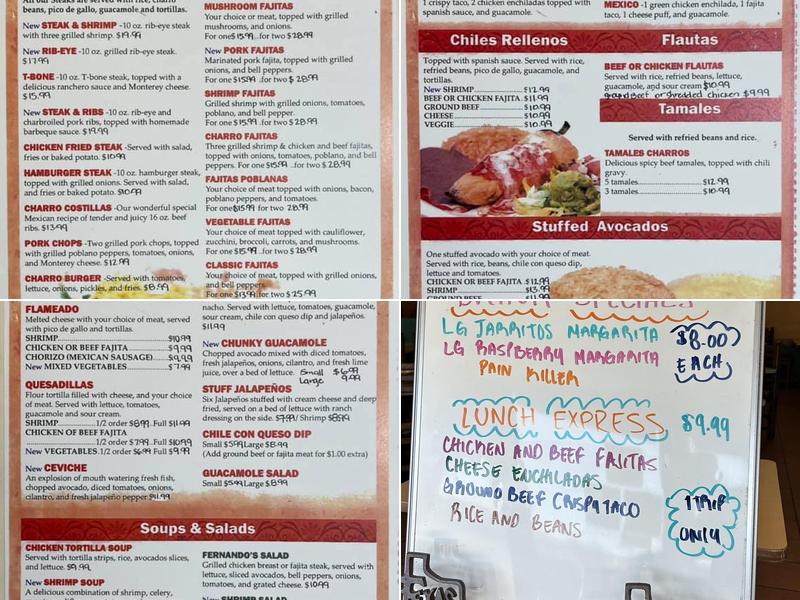 All our Steaks are served with rice, charro
beans, pico de gallo, guacamole and tortillas.
STEAK & SHRIMP -10 oz. rib-eye steak
with three grilled shrimp. $19.99
New RIB-EYE - 10 oz. grilled rib-eye steak.
$17.99
T-BONE -10 oz. T-bone steak, topped with a
delicious ranchero sauce and Monterey cheese.
$15.99
New STEAK & RIBS -10 oz. rib-eye and
charbroiled pork ribs, topped with homemade
barbeque sauce. $19.99
CHICKEN FRIED STEAK -Served with salad,
fries or baked potato. $10.99
HAMBURGER STEAK -10 oz. hamburger steak,
topped with grilled onions. Served with salad,
and fries or baked potato. $10.99
CHARRO COSTILLAS -Our wonderful special
Mexican recipe of tender and juicy 16 oz. beef
ribs. $13.99
PORK CHOPS -Two grilled pork chops, topped
with grilled poblano peppers, tomatoes, onions,
and Monterey cheese. $12.99
CHARRO BURGER -Served with tomatoes,
lettuce, onions, pickles, and fries. $8.99
MUSHROOM FAJITAS
Your choice of meat, topped with grilled
mushrooms, and onions.
For one $15.99..for two $28.99
New PORK FAJITAS
Marinated pork fajita, topped with grilled
onions, and bell peppers.
For one $15.99 ..for two $28.99
SHRIMP FAJITAS
Grilled shrimp with grilled onions, tomatoes,
poblano, and bell pepper.
For one $15.99 ..for two $28.99
CHARRO FAJITAS
Three grilled shrimp & chicken and beef fajitas,
topped with onions, tomatoes, poblano, and bell
peppers. For one $15.99 ..for two $28.99
FAJITAS POBLANAS
Your choice of meat topped with onions, bacon,
poblano peppers, and tomatoes.
For one $15.99 for two 28.99
VEGETABLE FAJITAS
Your choice of meat topped with cauliflower,
zucchini, broccoli, carrots, and mushrooms.
For one $15.99..for two $28.99
CLASSIC FAJITAS
Your choice of meat, topped with grilled onions,
and bell peppers.
For one $13.99 for two $25.99
1 crispy taco, 2 chicken enchiladas topped with
spanish sauce, and guacamole.
MEXICO -1 green chicken enchilada, 1 fajita
taco, 1 cheese puff, and guacamole.
Chiles Rellenos
Topped with spanish sauce. Served with rice,
refried beans, pico de gallo, guacamole, and
tortillas.
New SHRIMP $12.99
BEEF OR CHICKEN FAJITA $11.99
GROUND BEEF $10.99
CHEESE $10.99
VEGGIE $10.99
Flautas
BEEF OR CHICKEN FLAUTAS
Served with rice, refried beans, lettuce,
guacamole, and sour cream $10.99
ground beef or shredded chicken $9.99
Tamales
Served with refried beans and rice.
TAMALES CHARROS
Delicious spicy beef tamales, topped with chili
gravy.
5 tamales $12.99
3 tamales $10.99
Stuffed Avocados
One stuffed avocado with your choice of meat.
Served with rice, beans, chile con queso dip,
lettuce and tomatoes.
CHICKEN OR BEEF FAJITA .$12.99
SHRIMP $13.99
GROUND BEEF $11.99
FLAMEADO
Melted cheese with your choice of meat, served
with pico de gallo and tortillas.
SHRIMP $10.99
CHICKEN OR BEEF FAJITA $9.99
CHORIZO (MEXICAN SAUSAGE) $9.99
New MIXED VEGETABLES $7.99
QUESADILLAS
Flour tortilla filled with cheese, and your choice
of meat. Served with lettuce, tomatoes,
guacamole and sour cream.
SHRIMP 1/2 order $8.99..Full $11.99
CHICKEN OF BEEF FAJITA
1/2 order $7.99..Full $10.99
New VEGETABLES.1/2 order $6.99 Full $9.99
New CEVICHE
An explosion of mouth watering fresh fish,
chopped avocado, diced tomatoes, onions,
cilantro, and fresh jalapeño pepper $11.99
nacho. Served with lettuce, tomatoes, guacamole,
sour cream, chile con queso dip and jalapeños.
$11.99
New CHUNKY GUACAMOLE
Chopped avocado mixed with diced tomatoes,
fresh jalapeños, onions, cilantro, and fresh lime
juice, over a bed of lettuce. Small $6.99
Large 9.99
STUFF JALAPEÑOS
Six Jalapeños stuffed with cream cheese and deep
fried, served on a bed of lettuce with ranch
dressing on the side. $7.99/ Shrimp $8.99
CHILE CON QUESO DIP
Small $5.99 Large $8.99
(Add ground beef or fajita meat for $1.00 extra)
GUACAMOLE SALAD
Small $5.99 Large $8.99
Soups & Salads
CHICKEN TORTILLA SOUP
Served with tortilla strips, rice, avocados slices,
and lettuce. $9.99
New SHRIMP SOUP
A delicious combination of shrimp, celery,
FERNANDO'S SALAD
Grilled chicken breast or fajita steak, served with
lettuce, sliced avocados, bell peppers, onions,
tomatoes, and grated cheese. $10.99
New SHRIMP SALAD
DRINK SPECIALS
LG JARRITOS MARGARITA
LG RASPBERRY MARGARITA
PAIN KILLER
$8.00
EACH
LUNCH EXPRESS $9.99
CHICKEN AND BEEF FAJITAS
CHEESE ENCHILADAS
GROUND BEEF CRISPY TACO
RICE AND BEANS
1 TRIP
ONLY